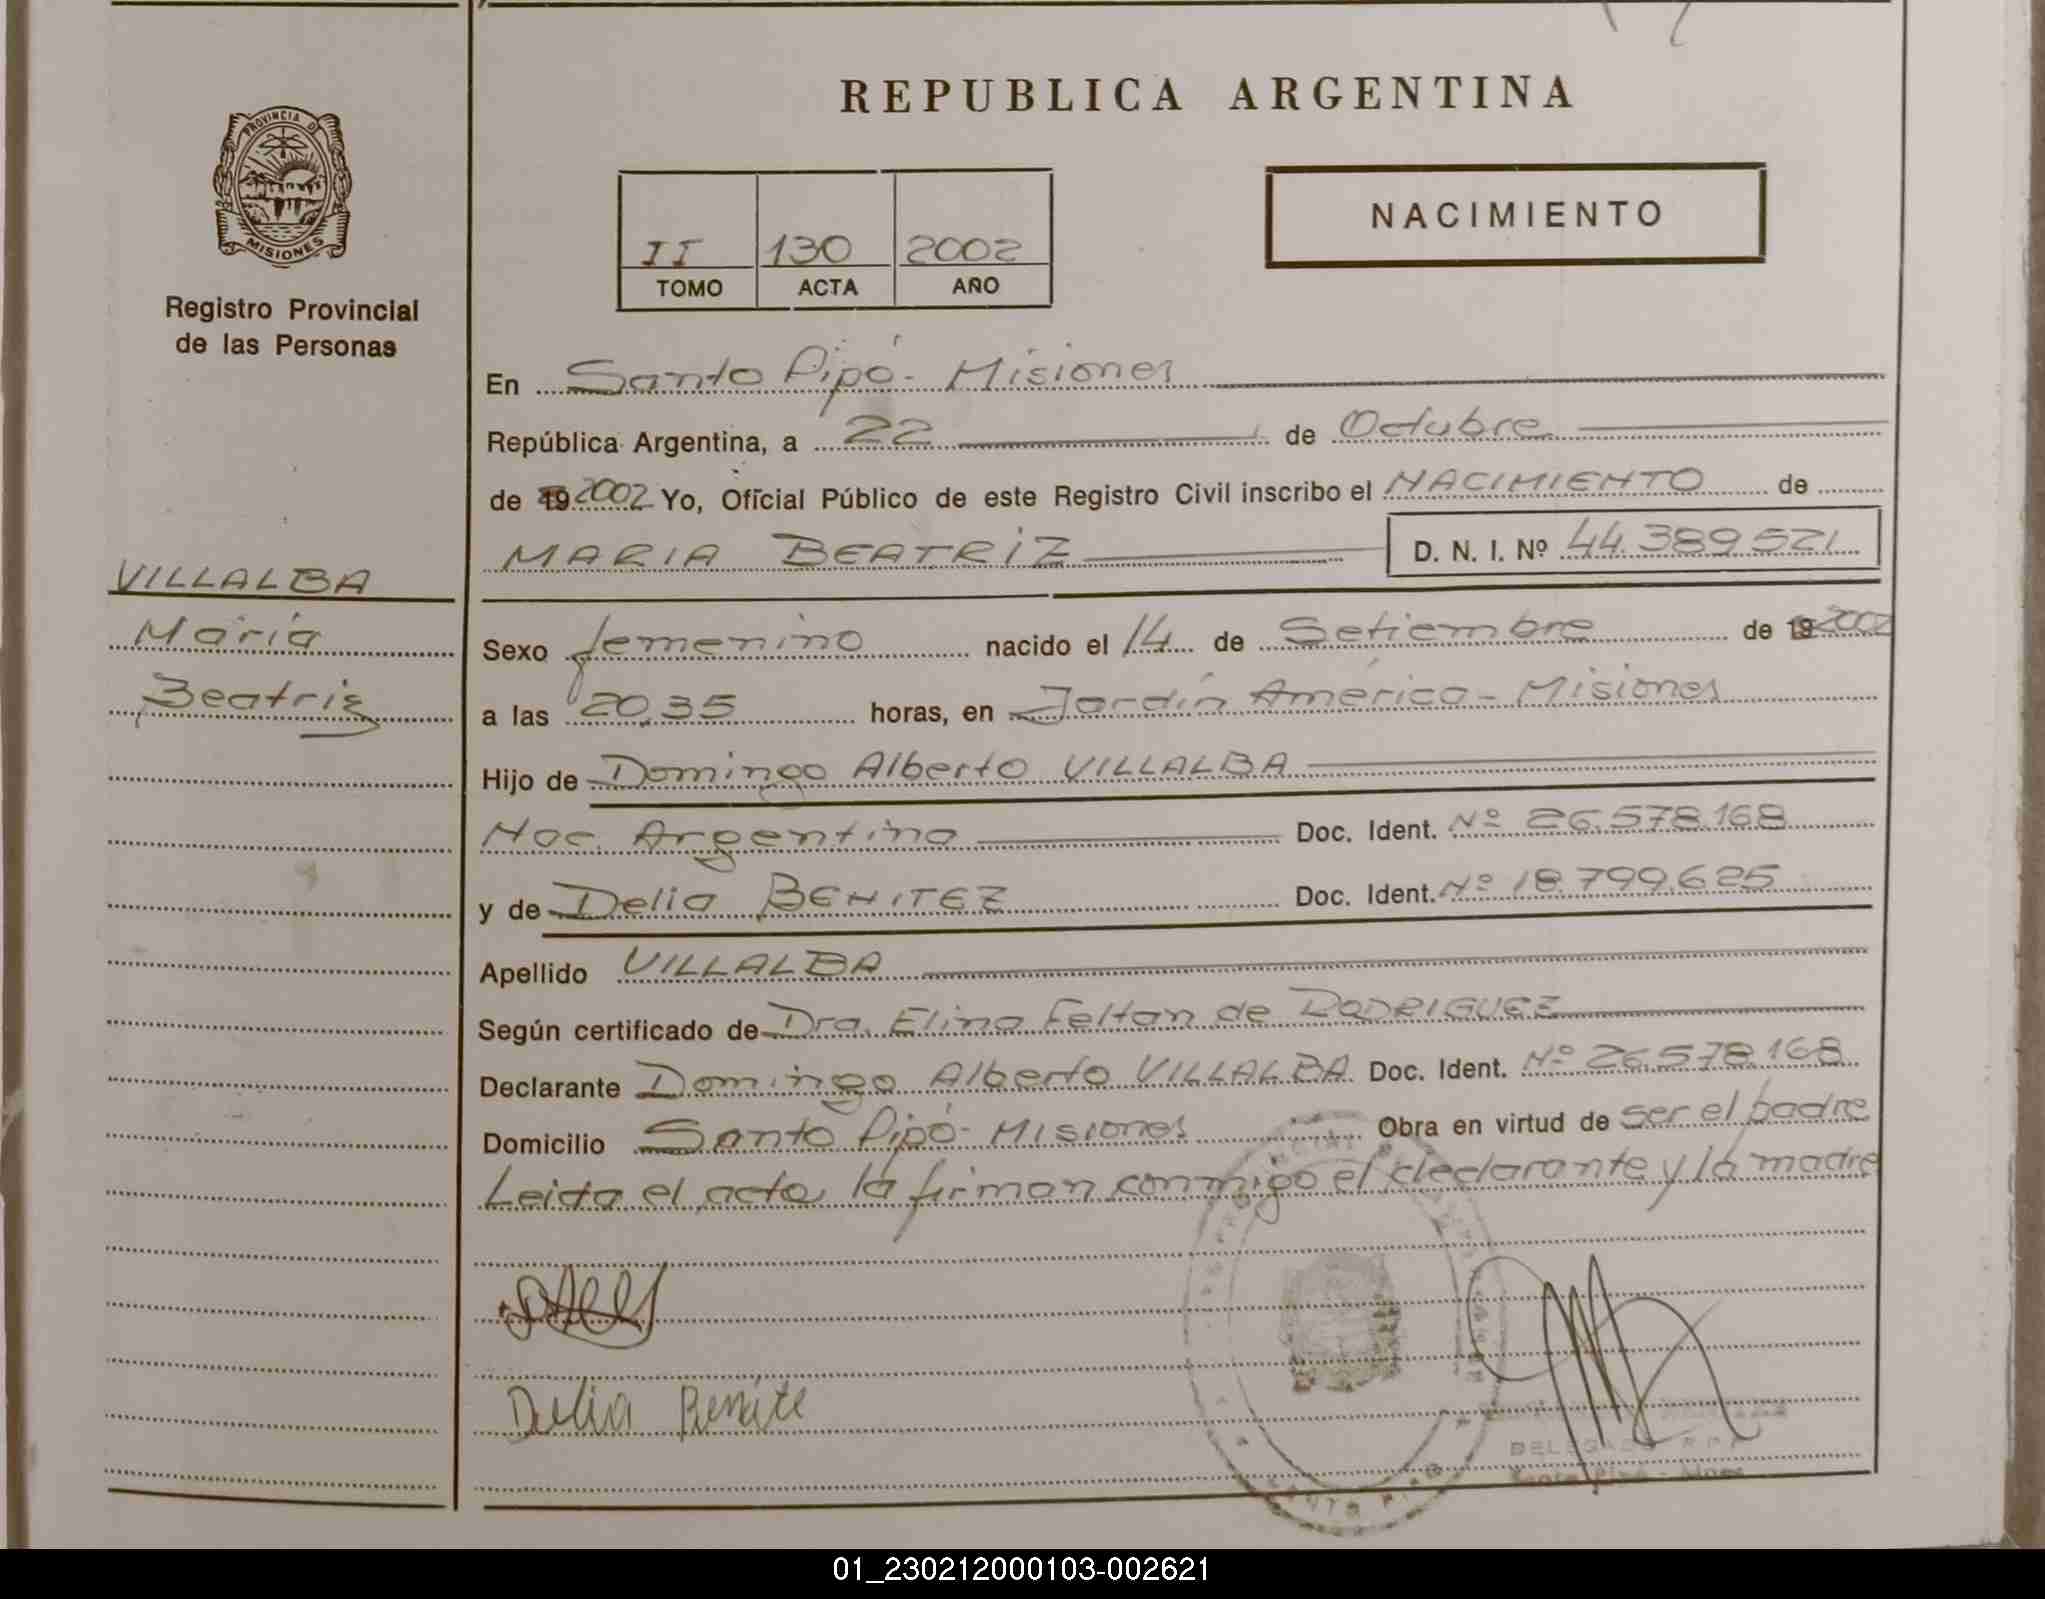 REPUBLICA ARGENTINA
PROVINCIA D
MISIONES
Registro Provincial
de las Personas
NACIMIENTO
II 130 2002
TOMO ACTA AÑO
En Santo Pipó - Misiones
República Argentina, a 22 de Octubre
de 19 2002 Yo, Oficial Público de este Registro Civil inscribo el NACIMIENTO de
MARIA BEATRIZ D. N. I. Nº 44.389.521
VILLALBA
María
Beatriz
Sexo femenino nacido el 14 de Setiembre de 19 2002
a las 20,35 horas, en Jardín América - Misiones
Hijo de Domingo Alberto VILLALBA
Nac. Argentina Doc. Ident. Nº 26.578.168
y de Delia BENITEZ Doc. Ident. Nº 18.799.625
Apellido VILLALBA
Según certificado de Dra. Elina Feltan de RODRIGUEZ
Declarante Domingo Alberto VILLALBA Doc. Ident. Nº 26.578.168
Domicilio Santo Pipó - Misiones Obra en virtud de ser el padre
Leida el acta la firman conmigo el declarante y la madre
Delia Benite
DELEGADA R.P.P.
Santo Pipó - Mnes
SANTO PIPO
01_230212000103-002621